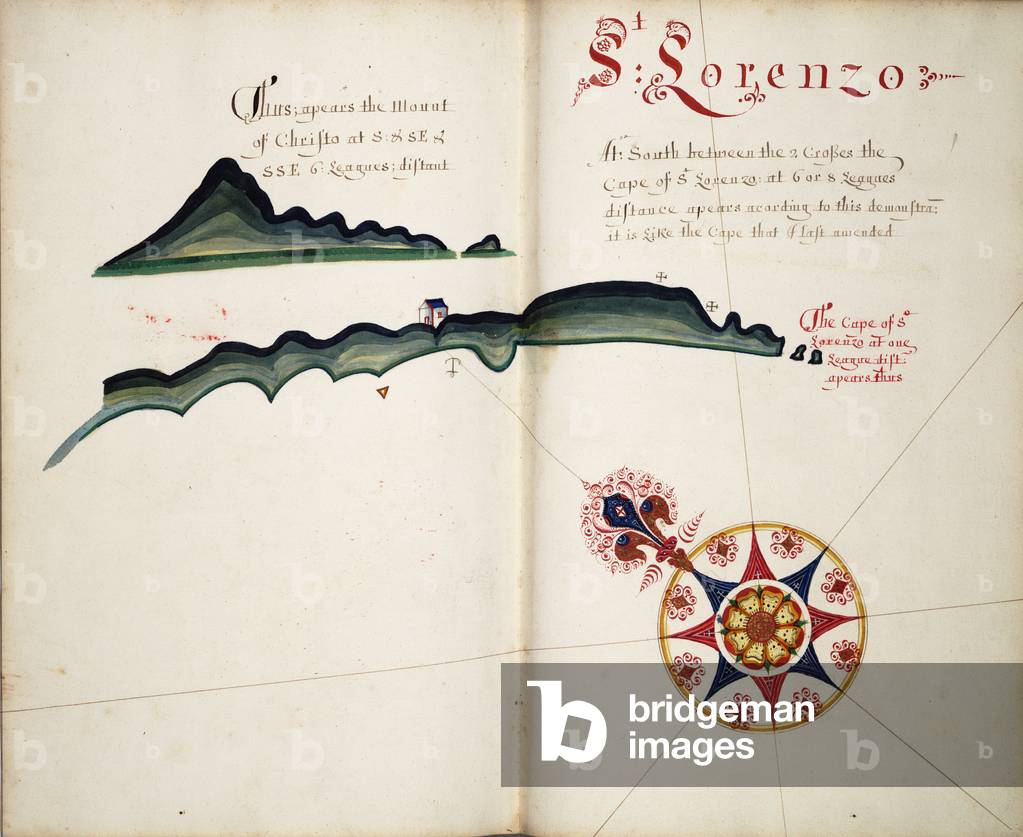 Thus; apears the Mount
of Christo at S: & SE &
SSE 6: Leagues; distant
St: Lorenzo
At: South between the 2 Croſses the
Cape of St Lorenzo: at 6 or 8 Leagues
distance apears acording to this demonstra:
it is Like the Cape that I last amended
The Cape of St
Lorenzo at one
League dist:
apears thus
b bridgeman
images